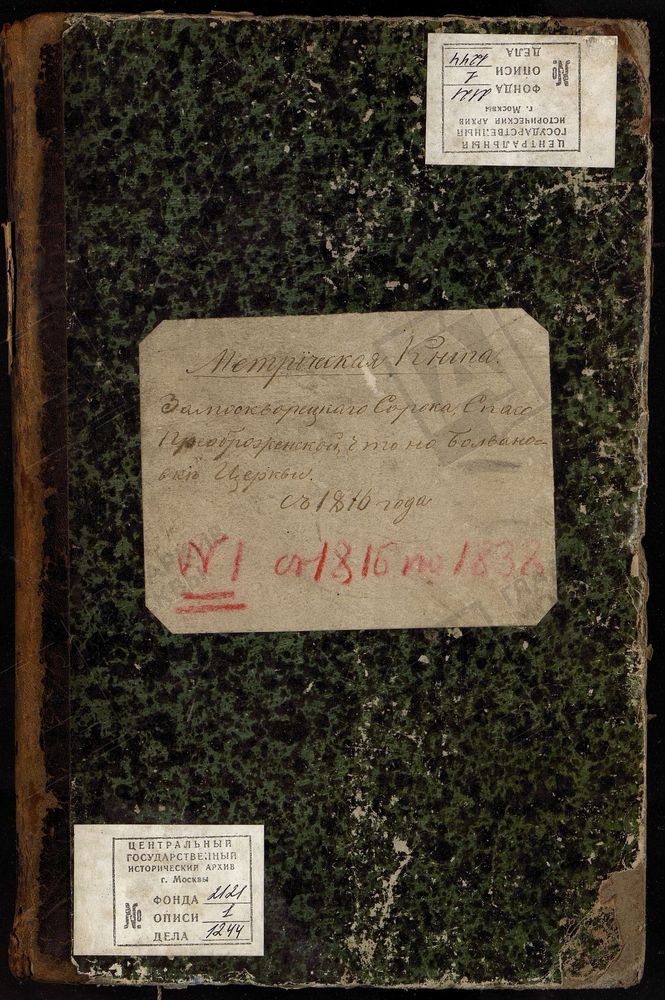 ЦЕНТРАЛЬНЫЙ
ГОСУДАРСТВЕННЫЙ
ИСТОРИЧЕСКИЙ АРХИВ
г. Москвы
ФОНДА 2121
№ ОПИСИ 1
ДЕЛА 1244
Метрическая Книга
Замоскворецкаго Сорока, Спасо
Преображенской, что на Болвано-
вкѣ Церкви.
съ 1816 года
N 1 от 1816 по 1838
ЦЕНТРАЛЬНЫЙ
ГОСУДАРСТВЕННЫЙ
ИСТОРИЧЕСКИЙ АРХИВ
г. Москвы
ФОНДА 2121
№ ОПИСИ 1
ДЕЛА 1244